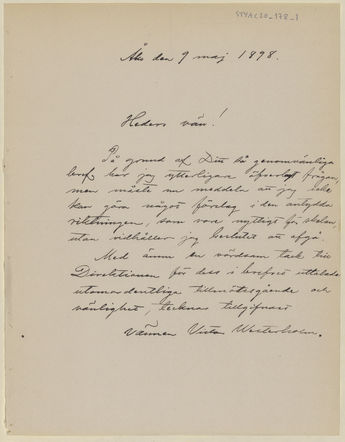 STYAC20_178_1
Åbo den 9 maj 1898.
Heders vän!
På grund af Ditt så genomvänliga
bref har jag ytterligare öfverlagt frågan,
men måste nu meddela att jag icke
kan göra något förslag i den antydda
riktningen, som vore nyttigt för skolan,
utan vidhåller jag beslutet att afgå.
Med ännu en vördsam tack till
Direktionen för dess i brefvet uttalade
utomordentliga tillmötesgående och
vänlighet, tecknar tillgifnast
vännen Victor Westerholm.